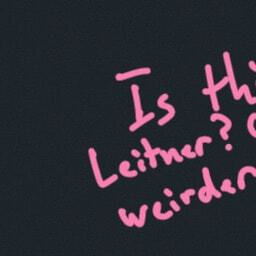 Is thi
Leitner?
weirder